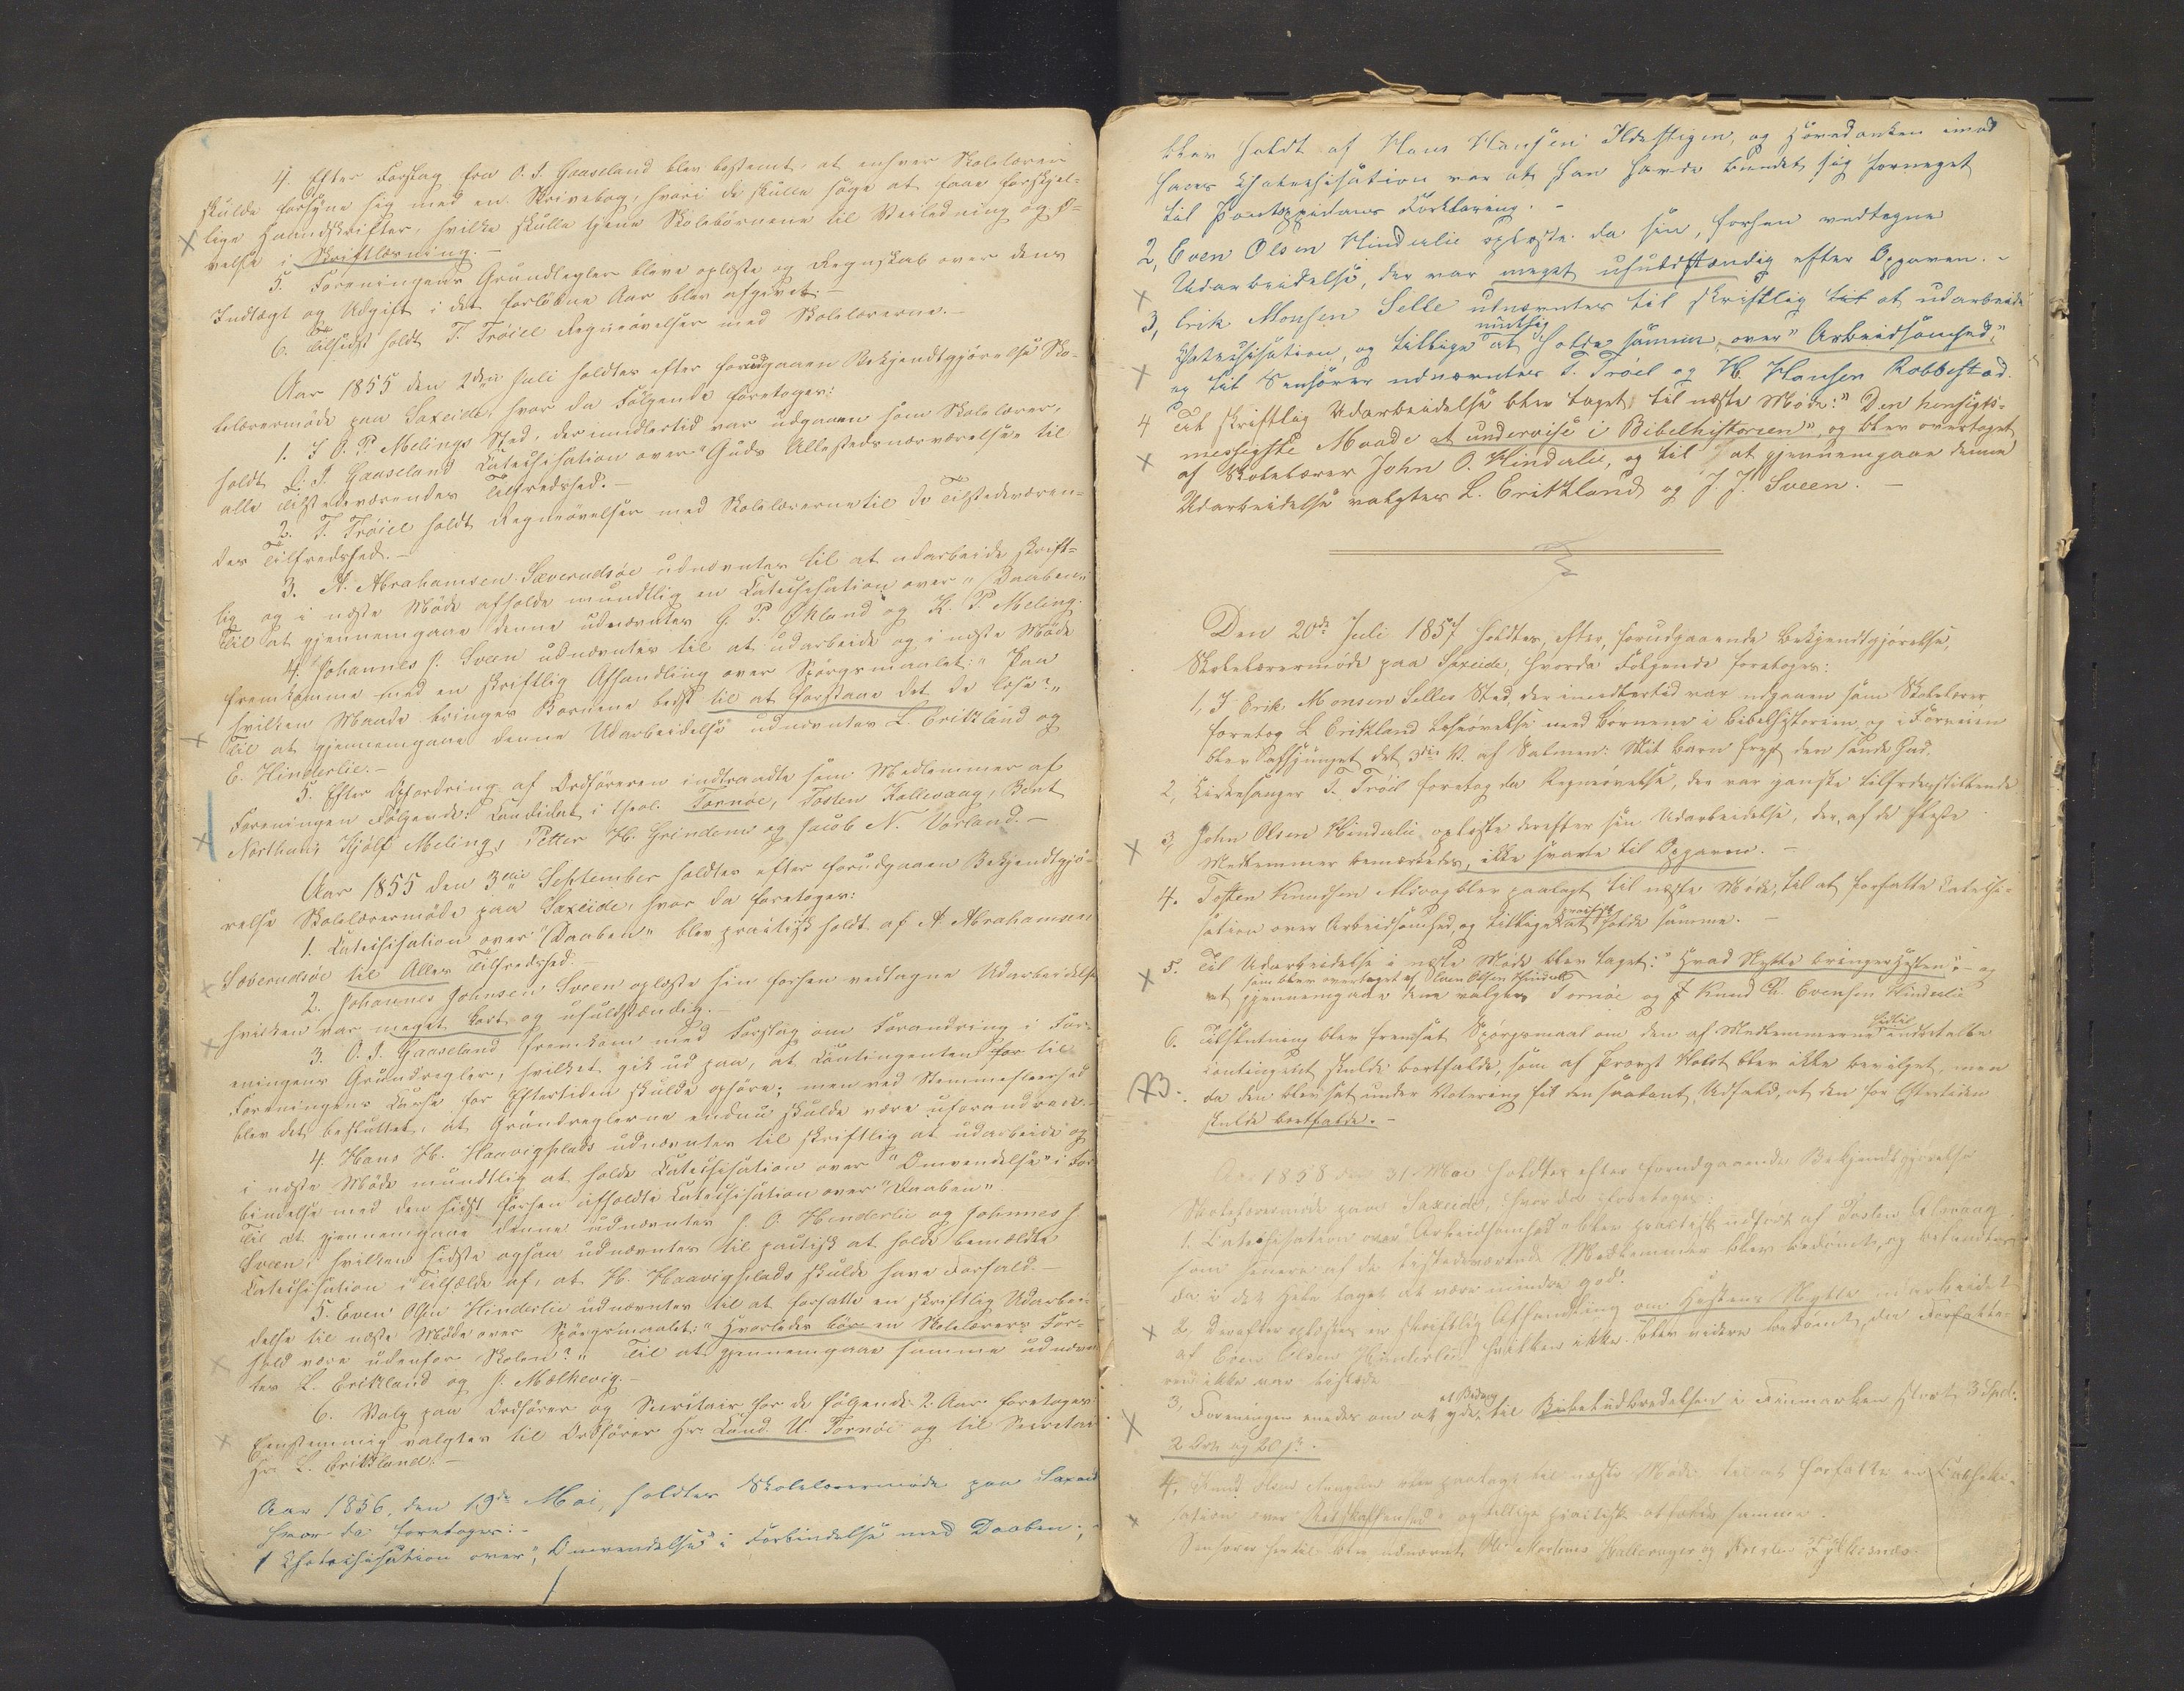 4. Efter Forslag fra O. J. Gaaseland blev bestemt, at enhver Skolelærer
skulde forsyne sig med en Skrivebog, hvori de skulle søge at faae forskjel-
lige Haandskrifter, hvilke skulle tjene Skolebørnene til Veiledning og Ø-
velse i Skriftlæsning.-
5. Foreningens Grundregler bleve oplæste og Regnskab over dens
Indtægt og Udgift i det forløbne Aar blev afgivet.-
6. Tilsidst holdt T. Trøiel Regneøvelser med Skolelærerne.-
Aar 1855 den 2den Juli holdtes efter forudgaaen Bekjendtgjørelse Sko-
lelærermøde paa Saxeide, hvor da Følgende foretoges:
1. I O. P. Melings Sted, der imidlertid var udgaaen som Skolelærer,
holdt O. J. Gaaseland Catechisation over "Guds Allestedsnærværelse" til
alle Tilstedeværendes Tilfredshed.-
2. T. Trøiel holdt Regneøvelser med Skolelærerne til de Tilstedeværen-
des Tilfredshed.-
3. A. Abrahamsen Sæverudsøe udnævntes til at udarbeide skrift-
lig og i næste Møde afholde mundtlig en Catechisation over "Daaben"
Til at gjennemgaae denne udnævntes G. P. Økland og K. P. Meling.
4. Johannes J. Sveen udnævntes til at udarbeide og i næste Møde
fremkomme med en skriftlig Afhandling over Spørgsmaalet: "Paa
hvilken Maade bringes Børnene bedst til at forstaae det de læse?"
Til at gjennemgaae denne Udarbeidelse udnævntes L. Erikland og
E. Hinderlie.-
5. Efter Opfordring af Ordføreren indtraadte som Medlemmer af
Foreningen Følgende: Candidat i theol. Tornøe, Tosten Kallevaag, Bent
Northun, Kjølf Meling, Petter H. Grindem og Jacob N. Vorland.-
Aar 1855 den 3die September holdtes efter forudgaaen Bekjendtgjø-
relse Skolelærermøde paa Saxeide, hvor da foretoges:
1. Catechisation over "Daaben" blev practisk holdt af A. Abrahamsen
Sæverudsøe til Alles Tilfredshed.-
2. Johannes Johnsen Sveen oplæste sin forhen vedtagne Udarbeidelse
hvilken var meget kort og ufuldstændig.-
3. O. J. Gaaseland fremkom med Forslag om Forandring i For-
eningens Grundregler, hvilket gik ud paa, at Contingenten for til
Foreningens Casse for Eftertiden skulde ophøre; men ved Stemmefleerhed
blev det besluttet, at Grundreglerne endnu skulde være uforandrede.-
4. Hans H. Haavigplads udnævntes til skriftlig at udarbeide og
i næste Møde mundtlig at holde Catechisation over "Omvendelse" i For-
bindelse med den sidst forhen afholdte Catechisation over "Daaben".
Til at gjennemgaae denne udnævntes J. O. Hinderlie og Johannes J
Sveen, hvilken sidste ogsaa udnævntes til practisk at holde bemeldte
Catechisation i Tilfælde af, at H. Haavigplads skulde have Forfald.-
5. Even Olsen Hinderlie udnævntes til at forfatte en skriftlig Udarbei-
delse til næste Møde over Spørgsmaalet: "Hvorledes bør en Skolelærers For-
hold være udenfor Skolen?" Til at gjennemgaae samme udnævn
tes L. Erikland og J. Mælhevig.-
6. Valg paa Ordfører og Secretair for de følgende 2 Aar foretoges.
Eenstemmig valgtes til Ordfører Hr. Cand. U. Tornøe og til Secretair
Hr. L. Erikland.-
Aar 1856, den 19de Mai, holdtes Skolelærermøde paa Saxeid
hvor da foretoges:-
1 Chatechisation over, "Omvendelse" i Forbindelse med Daaben.,-
blev holdt af Hans Hansen Ildstigen, og Hovedanken imod
hans Chatechisation var at han havde bundet sig formeget
til Pontoppidans Forklaring.-
2, Even Olsen Hinderlie oplæste da sin, forhen vedtagne
Udarbeidelse, der var meget ufuldstændig efter Opgaven.-
3, Erik Monsen Selle udnævntes til skriftlig til at udarbeide
mundtlig
Chatechisation, og tillige at holde samme, over "Arbeidsomhed,"
og til Censorer udnævntes T. Trøel og H. Hansen Robbestad.
4 Til skriftlig Udarbeidelse blev taget til næste Møde: "Den hensigts-
messigste Maade at undervise i Bibelhistorien", og blev overtaget
af Skolelærer John O. Hinderlie, og til at gjennemgaae denne
Udarbeidelse valgtes L. Erikkland og J. J. Sveen.-
Den 20de Juli 1857 holdtes, efter, forudgaaende Bekjendtgjørelse,
Skolelærermøde paa Saxeide, hvorda Følgende foretoges:
1, I Erik Monsen Selles Sted, der imidlertid var udgaaen som Skolelærer
foretog L Erikland Læseøvelse med Børnene i Bibelhistorien, og i Foreningen
blev afsjunget det 3die V. af Salmen: Mit Barn frygt den sande Gud.
2, Kirkesanger T. Trøel foretog da Regneøvelse, der var ganske tilfredsstillende
3, John Olsen Hinderlie oplæste derefter sin Udarbeidelse, der, af de fleste
Medlemmer bemærkedes, ikke svarte til Opgaven.-
4. Tosten Knudsen Alsvog blev paalagt til næste Møde, til at forfatte Catechi-
practisk
sation over Arbeidsomhed, og tillige at holde samme.-
5. Til Udarbeidelse i næste Møde blev taget: "Hvad Nytte bringer Hesten" - og
som blev overtaget af Even Olsen Hinderlie
at gjennemgaae den valgtes Tornøe og Knud Ch. Evensen Hinderlie
hidtil
6. Tilslutning blev fremsat Spørgsmaal om den af Medlemmerne indbetalte
Contingent skulde bortfalde, som af Provst Holst blev ikke bevilget, men
73. da den blev sat under Votering fik den saadant Udfald, at den for Eftertiden
skulde bortfalde.-
Aar 1858 den 31 Mai holdtes efter forudgaaende Bekjendtgjørelse
Skolelærermøde paa Saxeide, hvor da foretoges:
1. Catechisation over "Arbeidsomhed" blev practisk udført af Tosten Alsvaag
som senere af de tilstedeværende Medlemmer blev bedømt, og befandtes
da i det Hele taget at være mindre god.
2, Derefter oplæstes en skriftlig Afhandling om Hestens Nytte udarbeidet
af Even Olsen Hinderlie, hvilken ikke blev videre bedømt, da Forfatte-
ren ikke var tilstede.
et Bidrag
3, Foreningen enedes om at yde til Bibeludbredelsen i Finmarken stort 3 Spd.
2 Ort og 20 s.-
4. Knud Olsen blev paalagt til næste Møde til at forfatte en Catheki-
sation over "Retskaffenhed" og tillige practisk at holde samme.
Censorer hertil blev udnævnt